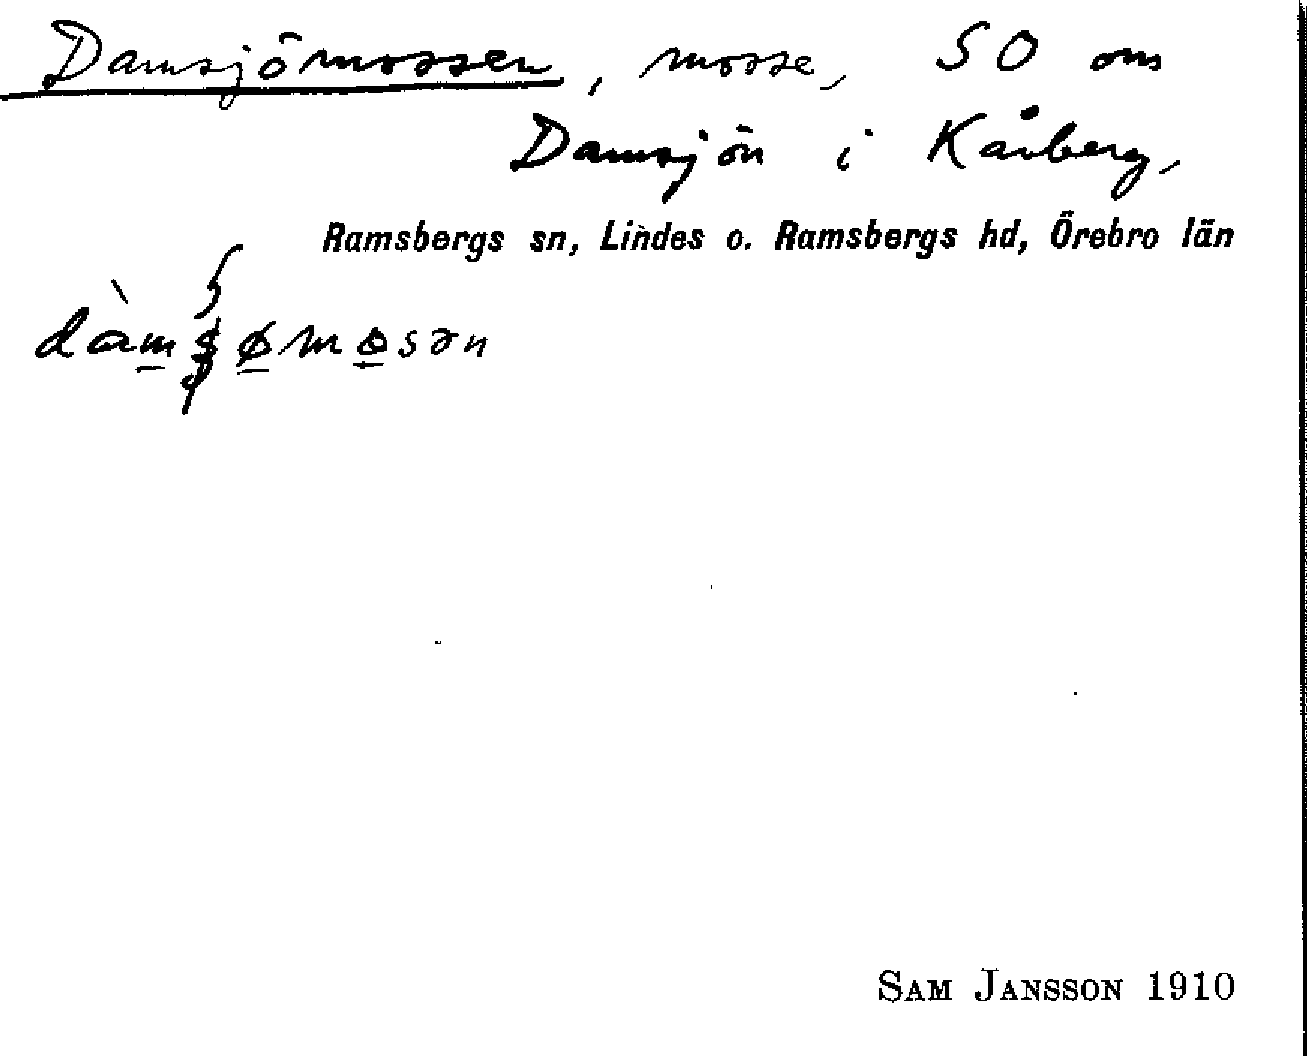 Damsjömossen, mosse, SO om
Damsjön i Kårberg,
Ramsbergs sn, Lindes o. Ramsbergs hd, Örebro län
SAM JANSSON 1910